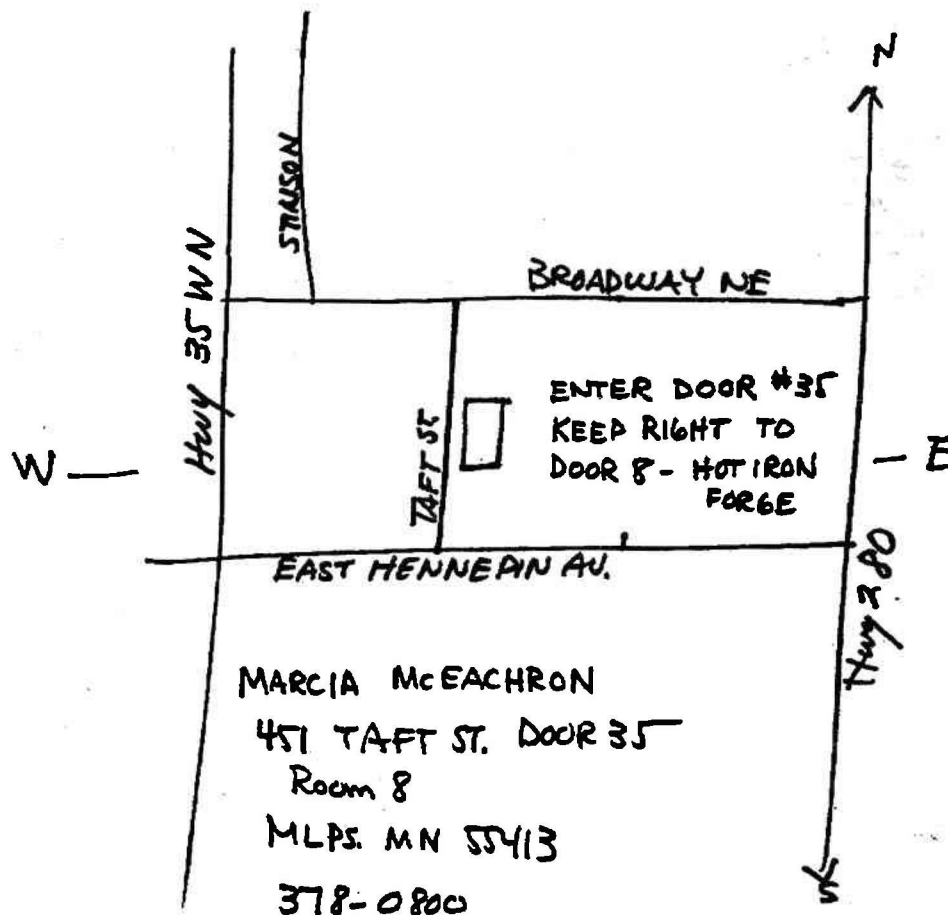 N
STINSON
Hwy 35 W N
BROADWAY NE
TAFT ST.
ENTER DOOR #35
KEEP RIGHT TO
DOOR 8 - HOT IRON
FORGE
W
E
EAST HENNEPIN AV.
Hwy 280
MARCIA McEACHRON
451 TAFT ST. DOOR 35
Room 8
MLPS. MN 55413
378-0800
S